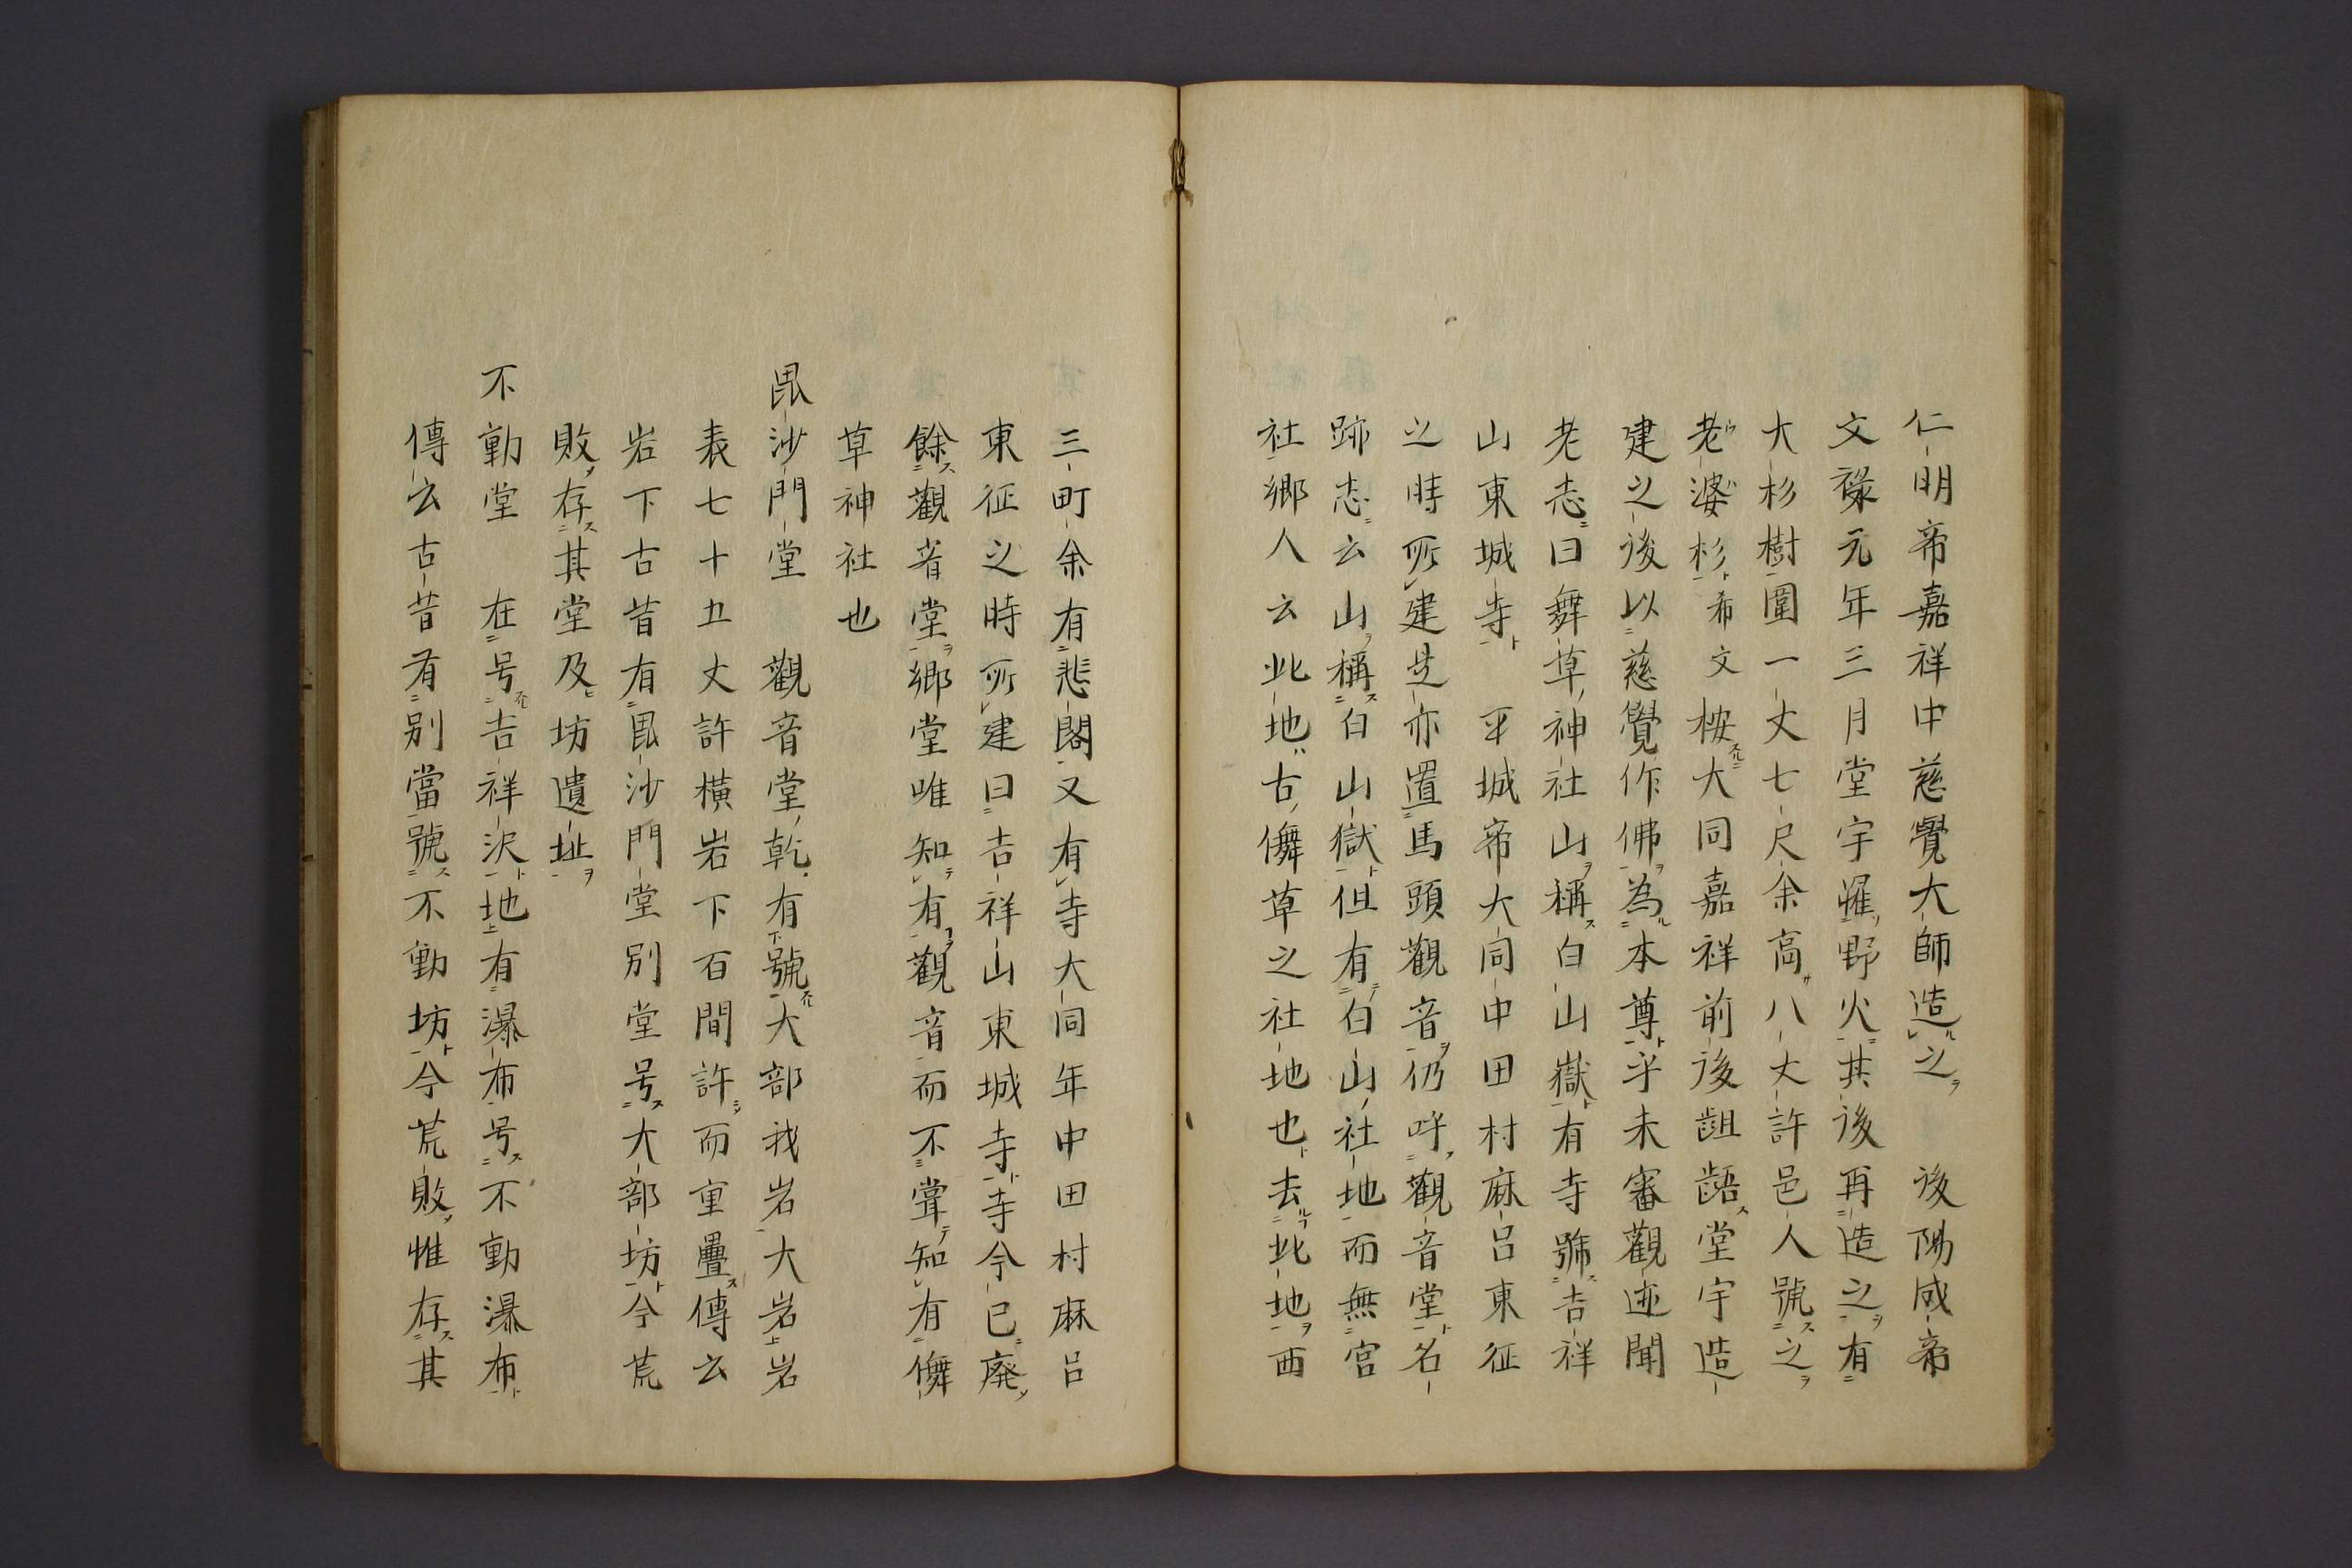 仁明帝嘉祥中慈覺大師造之　後陽成帝
文禄元年三月堂宇罹野火其後再造之有
大杉樹圍一丈七尺余高八丈許邑人號之
老婆杉希文桉大同嘉祥前後齟齬堂宇造
建之後以慈覺作佛為本尊乎未審觀迹聞
老志曰舞草神社山稱白山嶽有寺號吉祥
山東城寺　平城帝大同中田村麻呂東征
之時所建是亦置馬頭觀音仍呼觀音堂名
跡志云山稱白山嶽但有白山社地而無宮
社鄉人云此地古儛草之社地也去此地西
三町余有悲閣又有寺大同年中田村麻呂
東征之時所建曰吉祥山東城寺寺今已廃
餘觀音堂鄉堂唯知有觀音而不甞知有儛
草神社也
毘沙門堂　觀音堂乾有號大部我岩大岩岩
表七十五丈許橫岩下百間許而重疊傳云
岩下古昔有毘沙門堂別堂号大部坊今荒
敗存其堂及坊遺址
不動堂　在号吉祥沢地有瀑布号不動瀑布
傳云古昔有別當號不動坊今荒敗惟存其